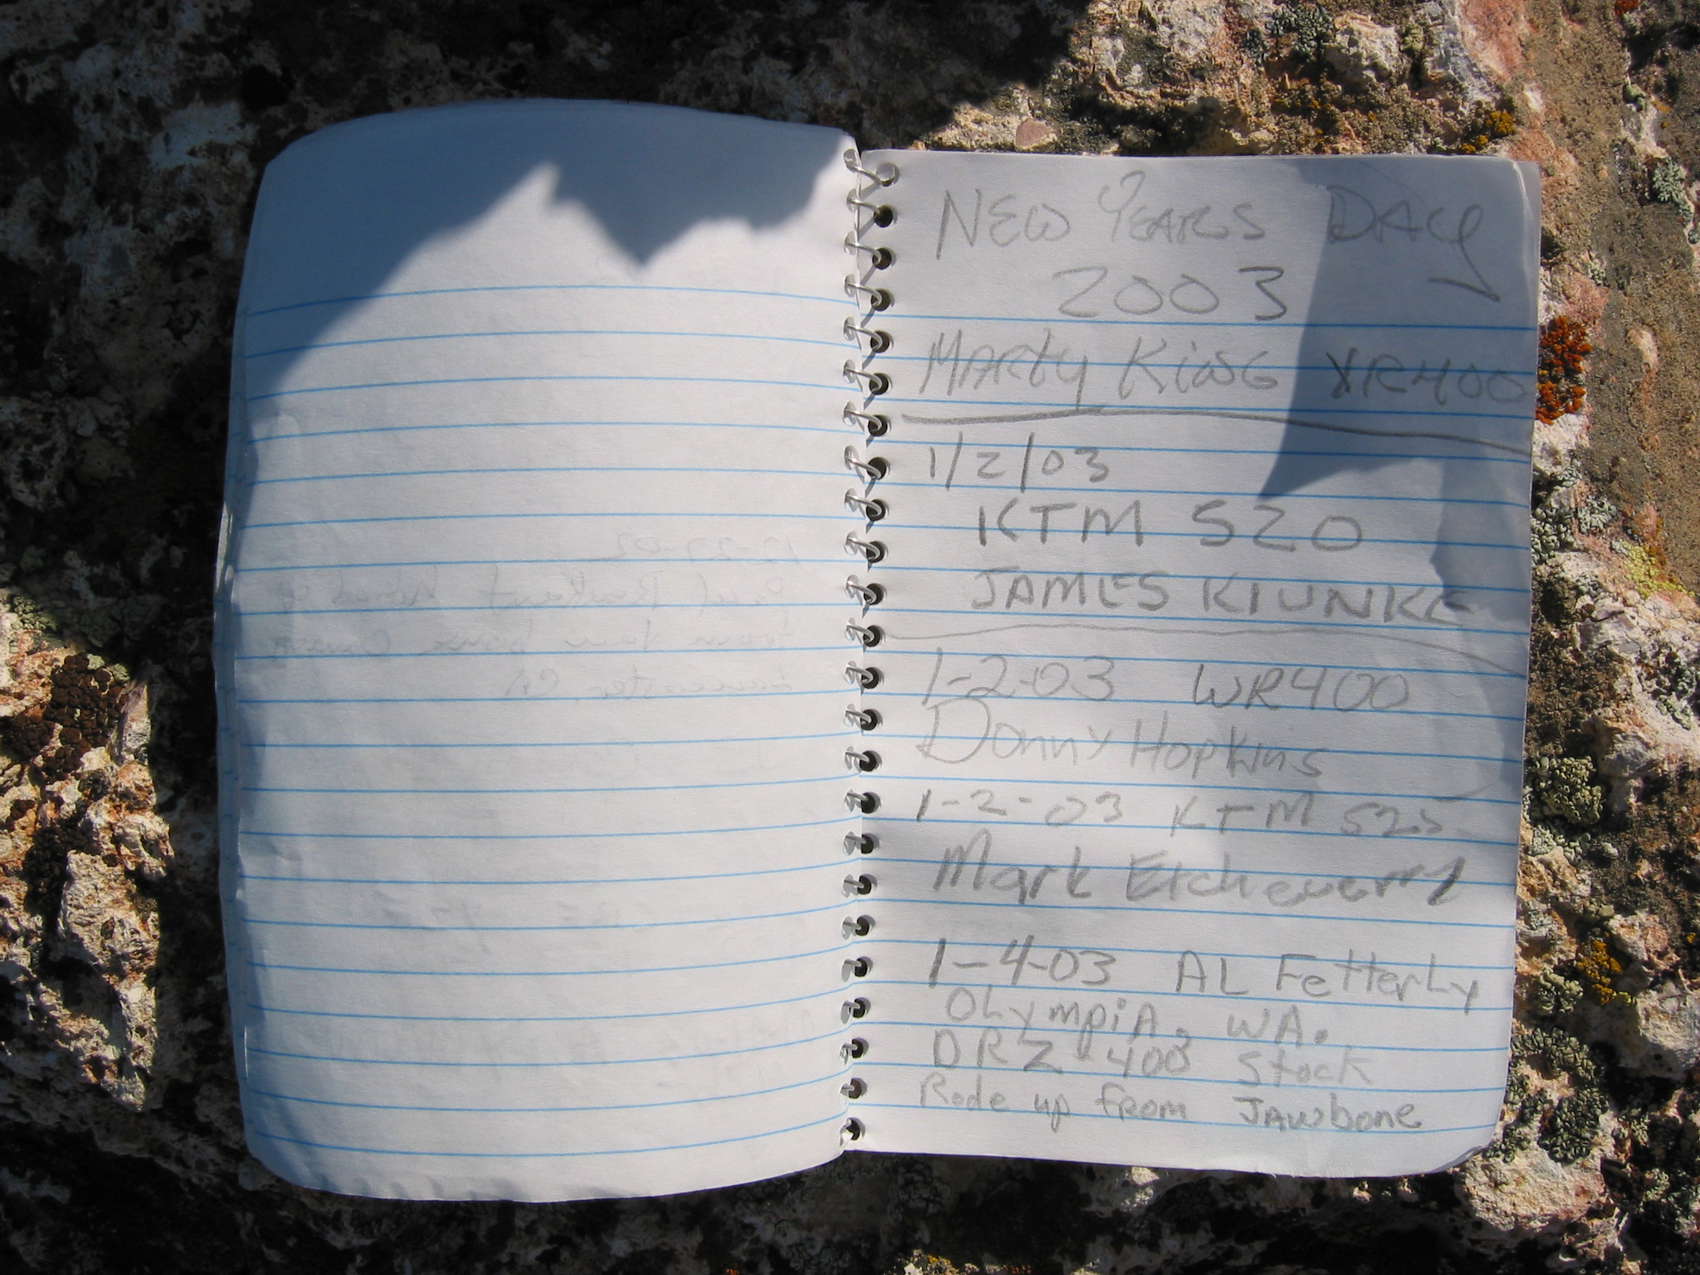 NEW YEARS DAY
2003
MARTY KING XR400
1/2/03
KTM 520
JAMES KIUNKE
1-2-03 WR400
Donny Hopkins
1-2-03 KTM 525
Mark Etcheverry
1-4-03 AL FetterLy
OLympiA, WA.
DRZ-400 Stock
Rode up from JAWbone